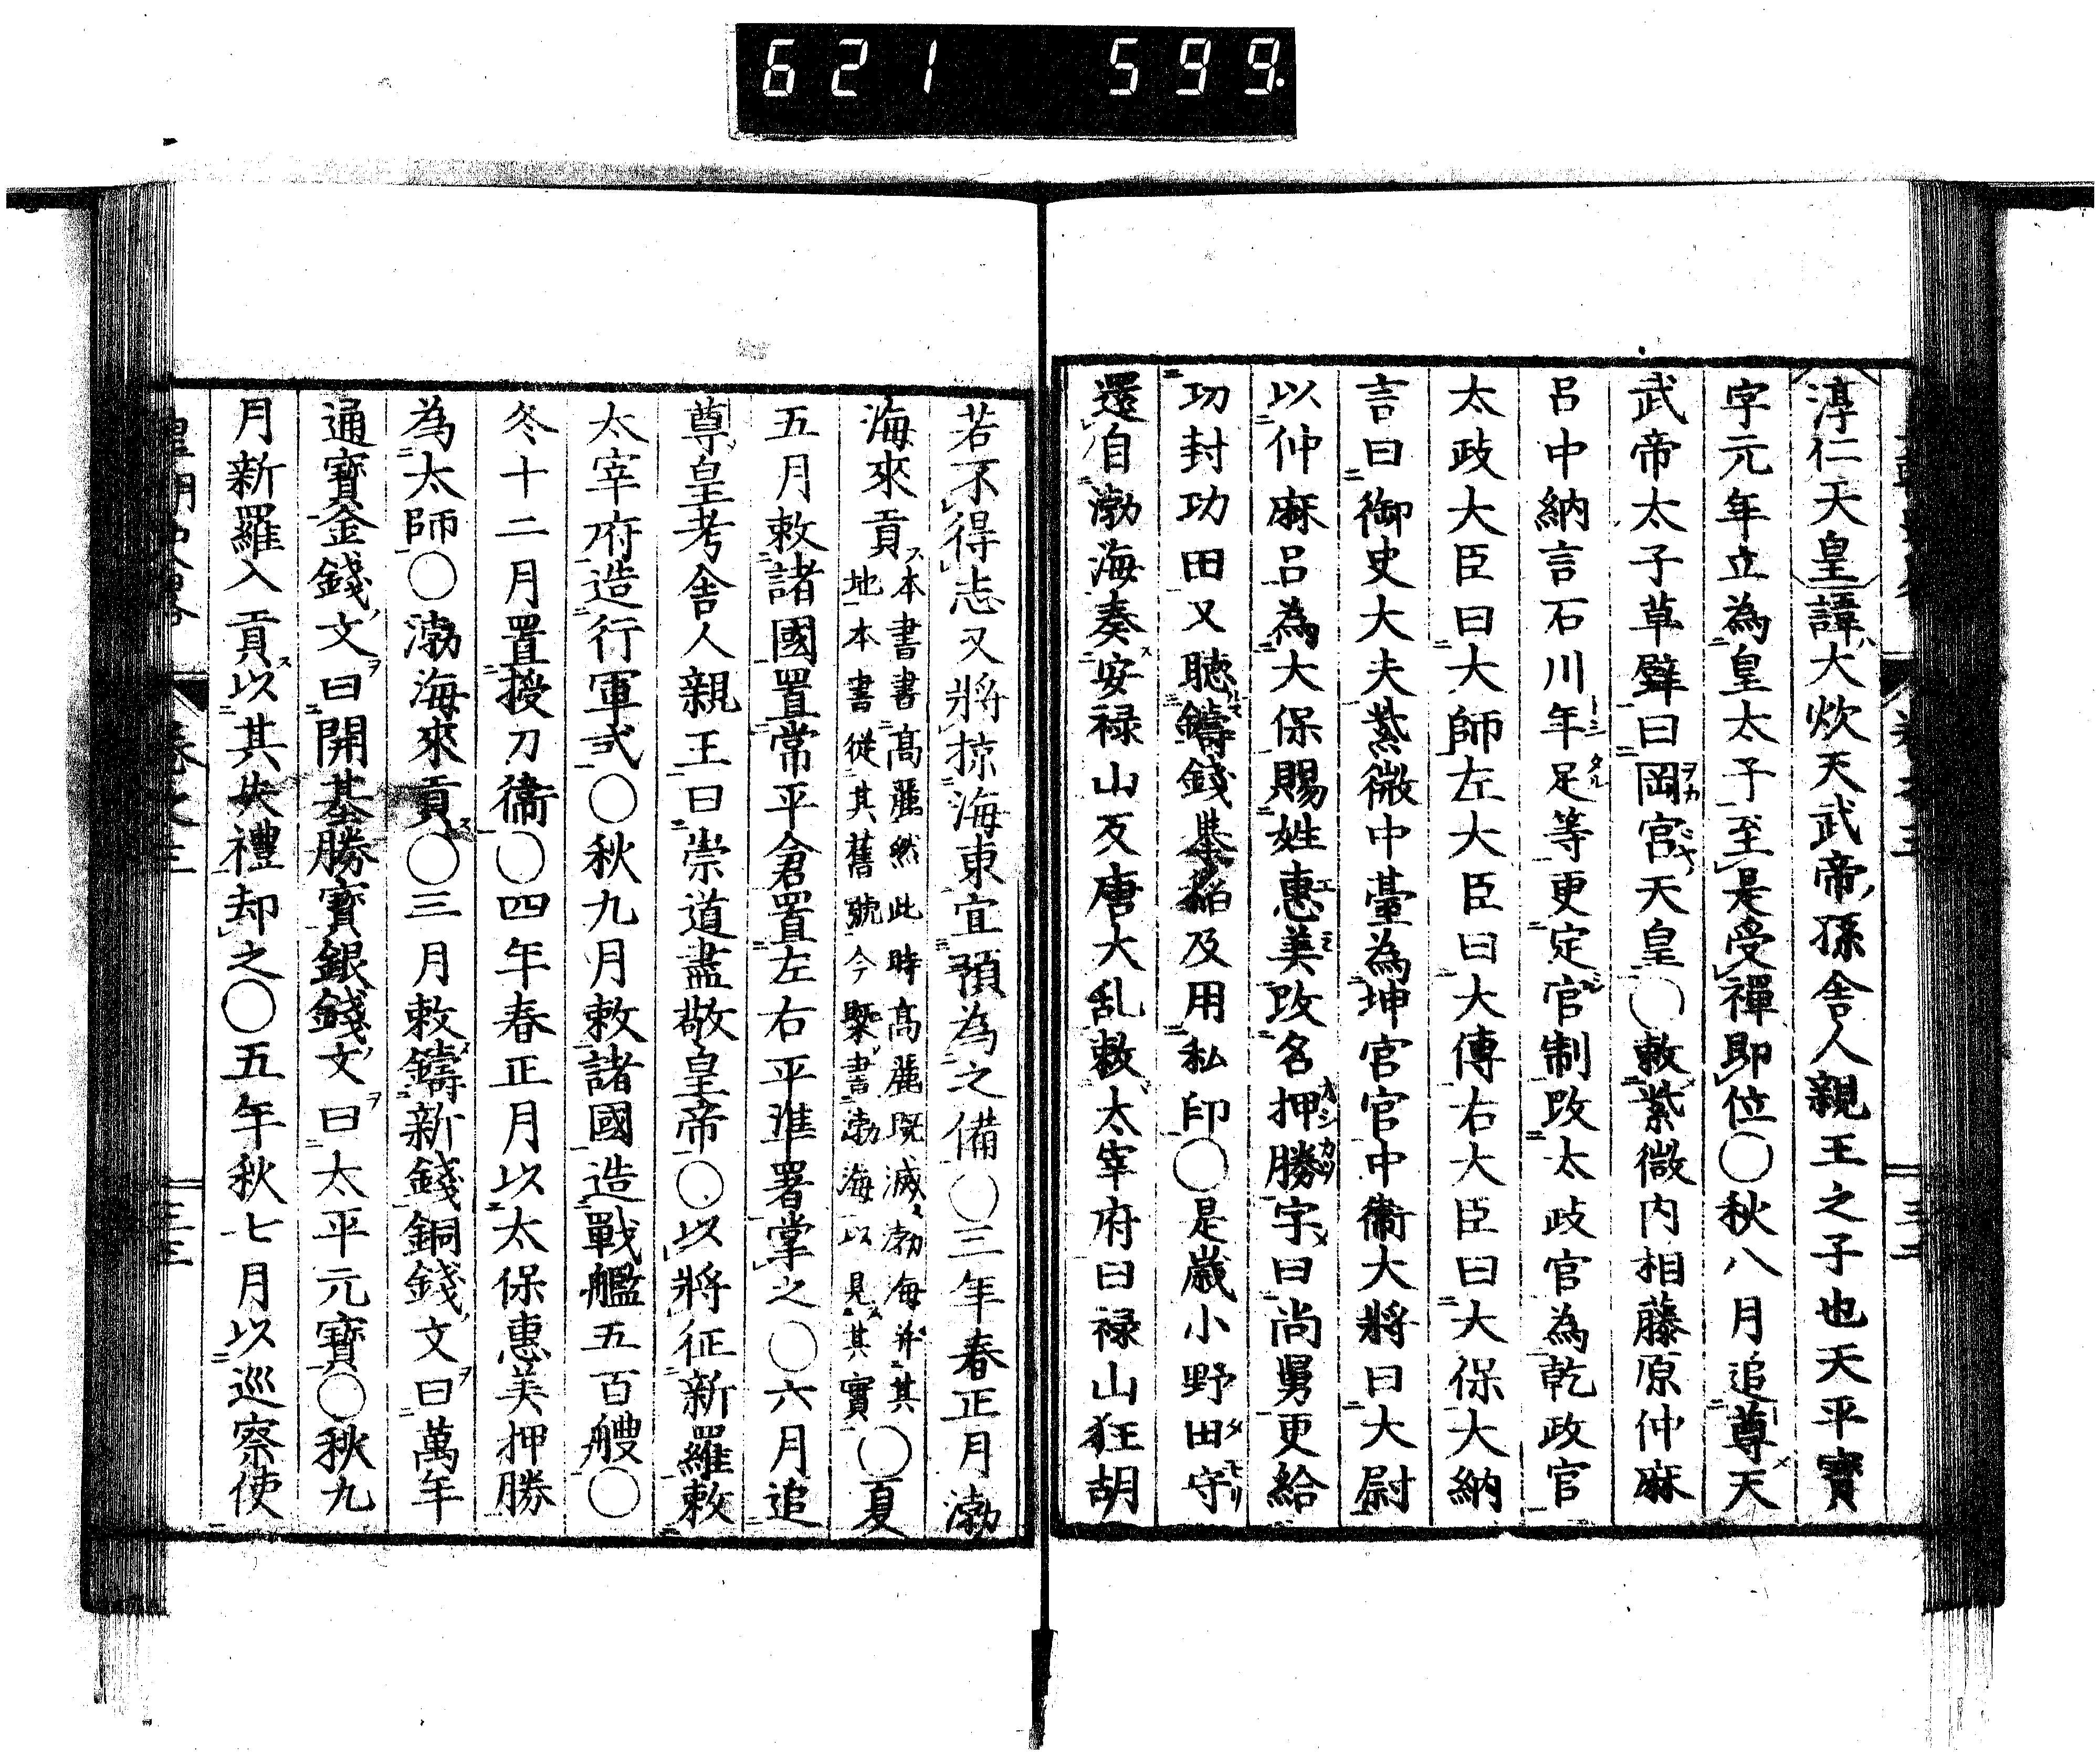 621 599.
淳仁天皇諱大炊天武帝孫舎人親王之子也天平寳
字元年立為皇太子至是受禪即位〇秋八月追尊天
武帝太子草壁曰岡宮天皇〇敕紫微内相藤原仲麻
呂中納言石川年足等更定官制改太政官為乾政官
太政大臣曰大師左大臣曰大傳右大臣曰大保大納
言曰御史大夫紫微中臺為坤宮官中衞大將曰大尉
以仲麻呂為大保賜姓惠美改名押勝字曰尚舅更給
功封功田又聴鑄錢擧稲及用私印〇是歳小野田守
還自渤海奏安禄山反唐大乱敕太宰府曰禄山狂胡
若不得志又將掠海東宜預為之備〇三年春正月渤
海來貢本書書高麗然此時高麗既滅渤海并其
地本書從其舊號今槩書渤海以見其實〇夏
五月敕諸國置常平倉置左右平準署掌之〇六月追
尊皇考舎人親王曰崇道盡敬皇帝〇以將征新羅敕
太宰府造行軍式〇秋九月敕諸國造戰艦五百艘〇
冬十二月置授刀衞〇四年春正月以太保惠美押勝
為太師〇渤海來貢〇三月敕鑄新錢銅錢文曰萬年
通寳金錢文曰開基勝寳銀錢文曰太平元寳〇秋九
月新羅入貢以其失禮却之〇五年秋七月以巡察使
卷之三